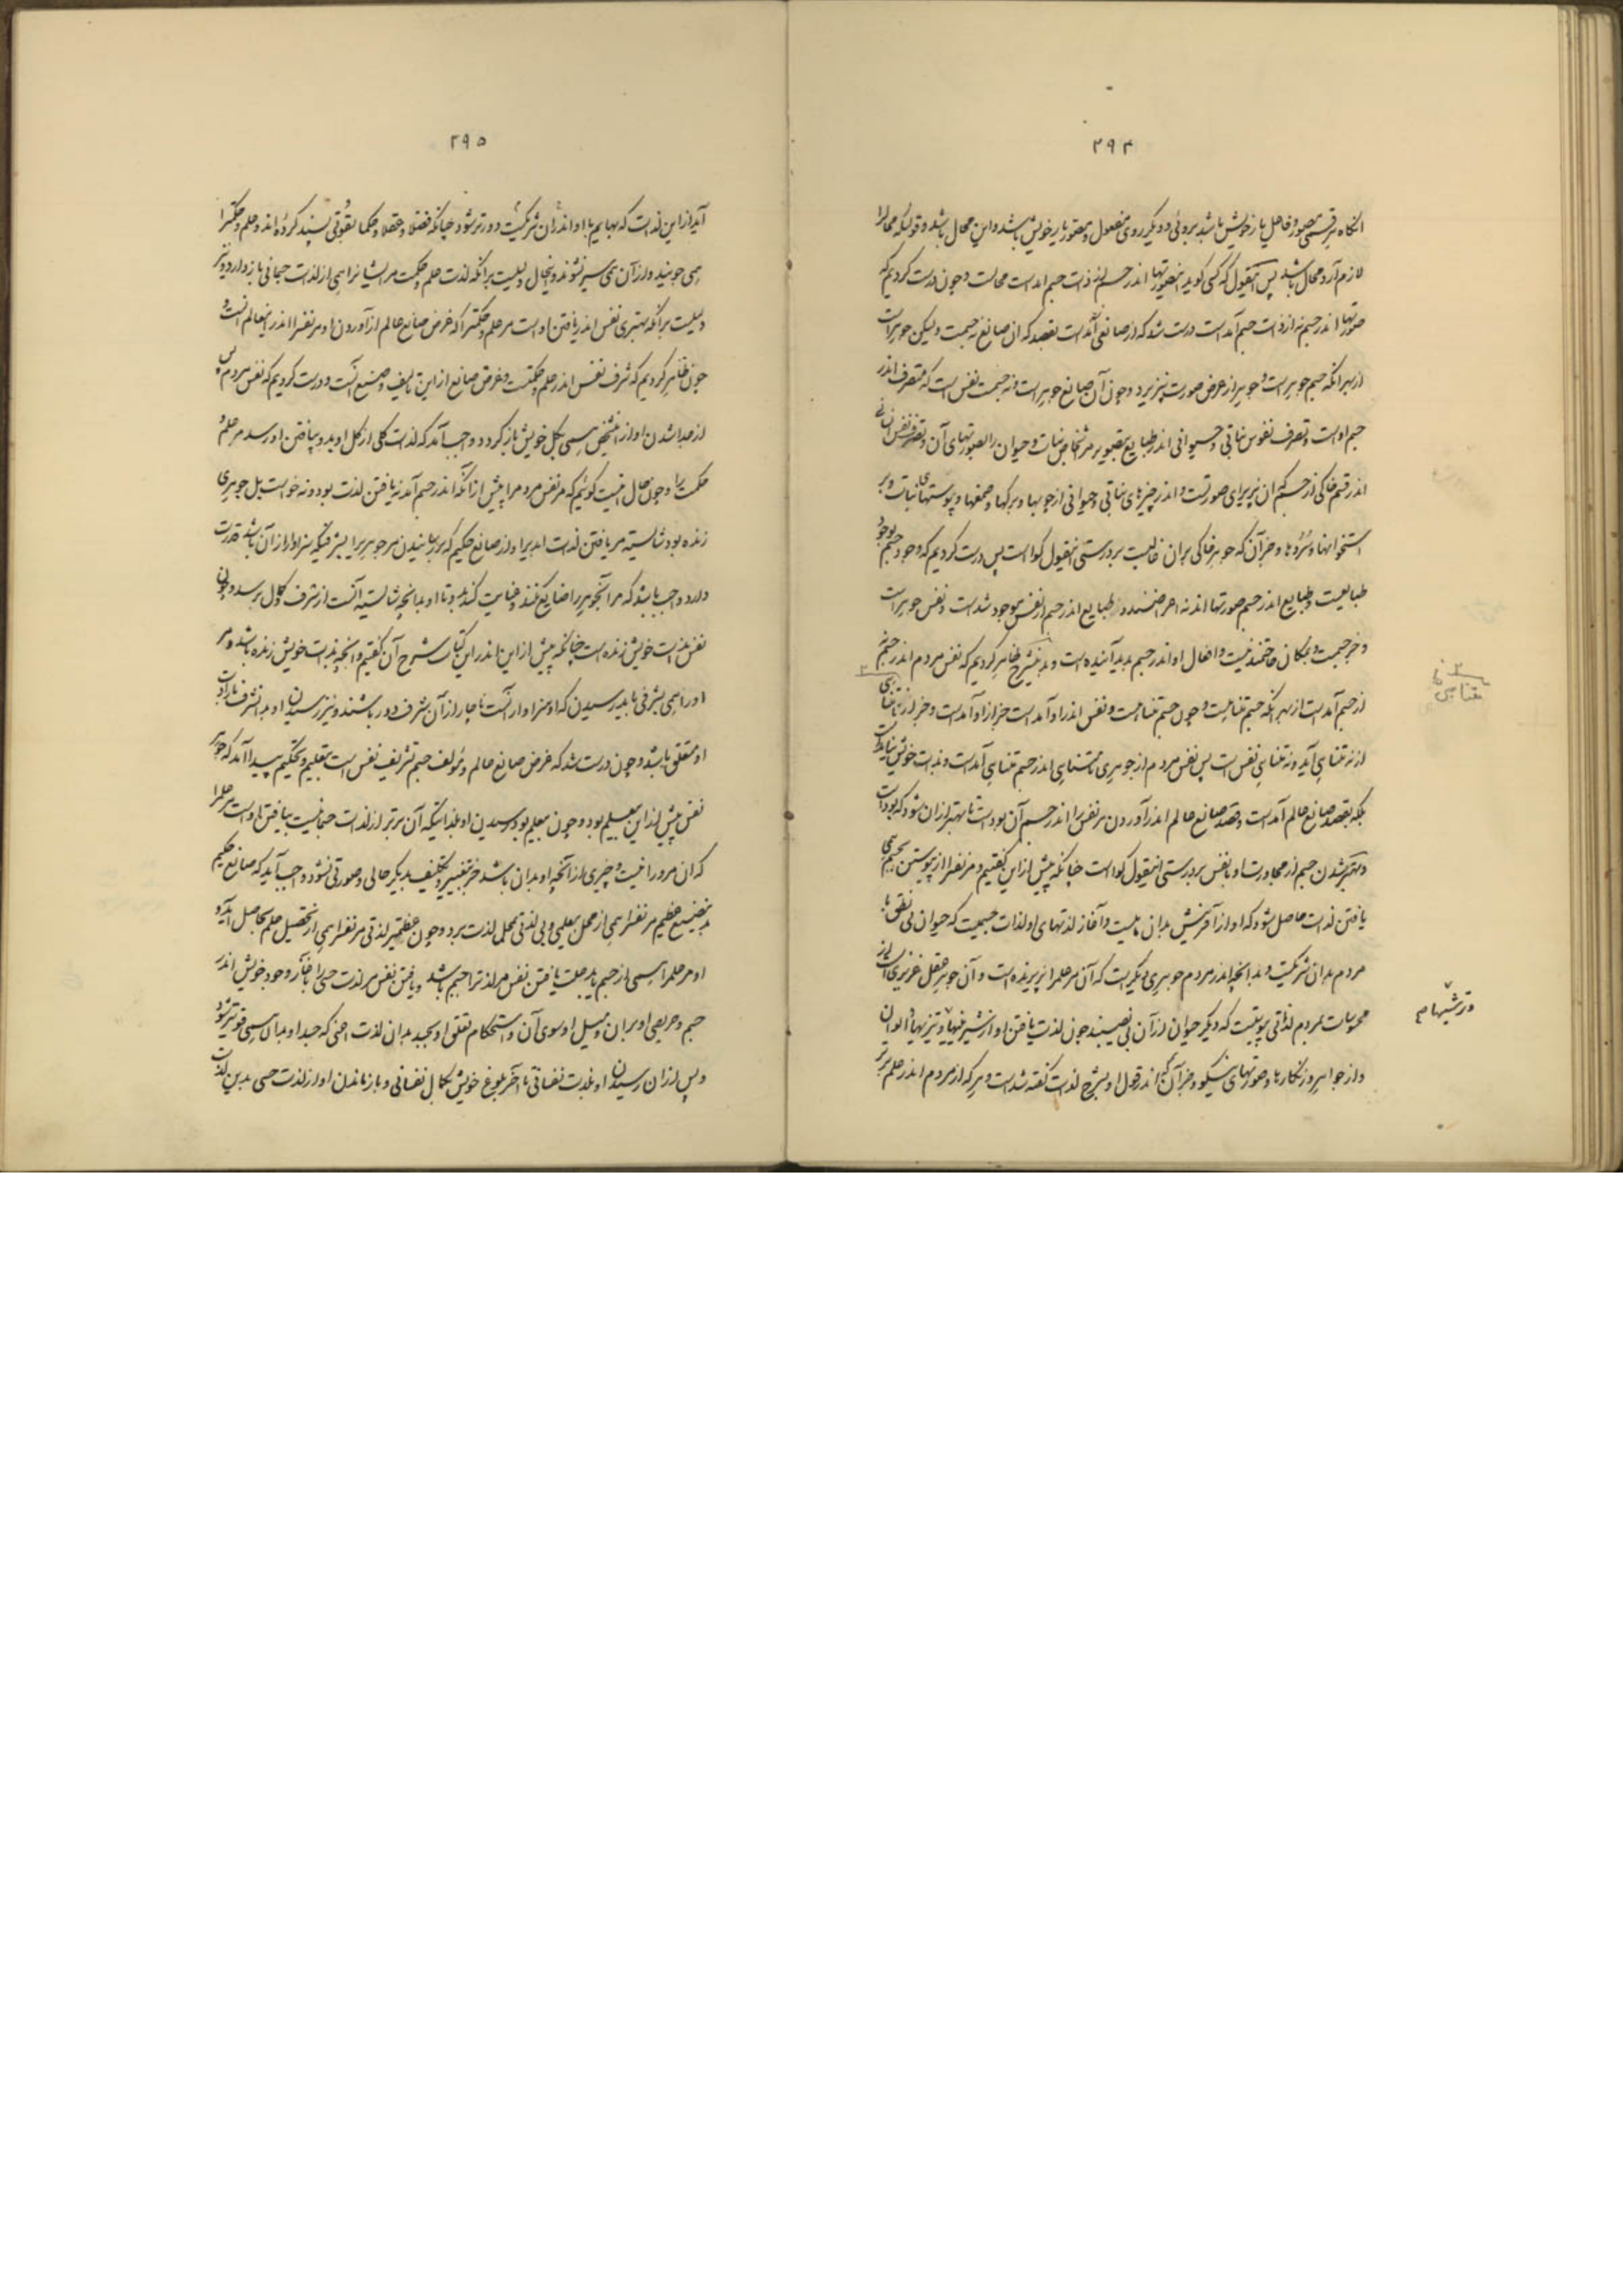 ۲۹۴
آنگاه هر قسمی مصور و فاعل باز خویش باشد بروئی و دیگر روی مفعول و مصور باز خویش باشد و این محال باشد و قولیکه محال را
لازم آرد محال باشد پس آنقول که کسی گوید این صورتها اندر جسم از ذات جسم آمده است محالست و چون درست کردیم که
صورتها اندر جسم نه از ذات جسم آمده است درست شد که از صانعی آمده است بقصد که آن صانع نه جسمست ولیکن جوهر است
از بهر آنکه جسم جوهر است و جوهر از عرض صورت نپذیرد و چون آن صانع جوهر است و نه جسمست نفس است که متصرف اندر
جسم اوست و تصرف نفوس نباتی و حیوانی اندر طبایع بتصویر مر اشخاص نبات و حیوان را بصورتهای آن و تصرف نفس انسانی
اندر قسم خاکی از جسم که آن پذیرای صورتست و اندر چیزهای نباتی و حیوانی از چوبها و برگها و صمغها و پوستهای نبات و بر
استخوانها و سروها و جز آن که جوهر خاکی بران غالبست بر درستی اینقول گواست پس درست کردیم که وجود جسم بوجود
طبایعست و طبایع اندر جسم صورتها اند نه اعراضند و طبایع اندر جسم از نفس موجود شدست و نفس جوهر است
و جز جسمست و بمکان حاجتمند نیست و افعال او اندر جسم پدید آینده است و بدین شرح ظاهر کردیم که نفس مردم اندر جسم نه
از جسم آمدست از بهر آنکه جسم متناهیست و چون جسم متناهیست و نفس اندرو آمدست جز از او آمدست و جز از متناهی
از نه متناهی آید و نه متناهی نفس است پس نفس مردم از جوهری نامتناهی اندر جسم متناهی آمدست و بذات خویش نیامدست
بلکه بقصد صانع عالم آمدست و قصد صانع عالم اندر آوردن مر نفس را اندر جسم آن بودست تا بهتر از آن شود که بودست
و بهتر شدن جسم از مجاورت او با نفس بر درستی اینقول گواست چنانکه پیش از این گفتیم و مر نفس را از پیوستن بجسم همی
یافتن لذت حاصل شود که او از آفرینش بدان مایلست و آغاز لذتهای او لذات جسمیست که حیوان بی نطق با
مردم بدان شریکست و بدانچه اندر مردم جوهری دیگریست که آن مر علم را پذیرنده است و آن جوهر عقل غریزی است از
محسوسات بمردم لذاتی پیوسته است که دیگر حیوان از آن بی نصیبند چون لذت یافتن او از شیرینیها و تیزیها و الوان
و از جواهر و نگارها و صورتهای نیکو و جز آن که اندر قول او بشرح لذات گفته شدست و هر که از مردم اندر علم برتر
متناهی
و ترشیها م
۲۹۵
آید از این لذات که بهایم با او اندران شریکست دورتر شود چنانکه فضلا و عقلا و حکما بقوتی بسند کرده اند و علم و حکمت را
همی جویند و از آن همی سیر نشوند و اینحال دلیلست بر آنکه لذت علم و حکمت مر ایشانرا همی از لذات جسمانی باز دارد و نیز
دلیلست بر آنکه بهتری نفس اندر یافتن اوست مر علم و حکمت را که غرض صانع عالم از آوردن او مر نفس را اندر اینعالم آنست و
چون ظاهر کردیم که شرف نفس اندر علم و حکمتست و غرض صانع از این تالیف و صنع آنست و درست کردیم که نفس مردم پس
از جدا شدن او از اشخص همی بکل خویش باز گردد واجب آمد که لذات کلی از کل او بدو بیافتن او رسد مر علم و
حکمت را و چون حال اینست گوئیم که مر نفس مردم را پیش از آنکه اندر جسم آمد نه یافتن لذت بود و نه خواست بل جوهری
زنده بود شایسته مر یافتن لذات ابدیرا و از صانع حکیم که بر رسانیدن مر جوهریرا بشرفیکه سزاوار از آن باشد قدرت
دارد واجب باشد که مر آنجوهر را ضایع نکند و عنایت کند بدو تا او بدانچه شایسته آنست از شرف و کمال برسد و چون
نفس بذات خویش زنده است چنانکه پیش از این اندر این کتاب شرح آن گفتیم و آنچه بذات خویش زنده باشد و مر
او را همی بشرفی باید رسیدن که او سزاوار آنست ناچار از آن شرف دور باشد و نیز رسیدن او بدانشرف بارادت
او متعلق باشد و چون درست شد که غرض صانع عالم و مؤلف جسم تشریف نفس است بتعلیم و تحکیم پیدا آمد که جوهر
نفس پیش از این بی علم بود و چون بی علم بود رسیدن او بلذاتیکه آن برتر از لذات جسمانیست بیافتن اوست مر علم را
که آن مرورا نیست و چیزی از آنچه او بدان باشد جز بتغییر و تکلیف بدیگر حالی و صورتی نشود واجب آید که صانع حکیم
بدین صنع عظیم مر نفس را همی از محل بی علمی و بی لذتی بمحل لذت برد و چون عظیمتر لذتی مر نفس را همی از تحصیل علم حاصل آید و
او مر علم را همی از جسم یابد علت یافتن نفس مر لذت را جسم باشد و یافتن نفس مر لذت حسی را بآغاز وجود خویش اندر
جسم و حریصی او بران و میل او سوی آن و استحکام تعلق او بجسد بدان لذت حسی که جسد او بدان همی قویتر شود
و پس از آن رسیدن او بلذت نفسانی تا آخر بلوغ خویش بکمال نفسانی و باز ماندن او از لذت حسی بدین لذات